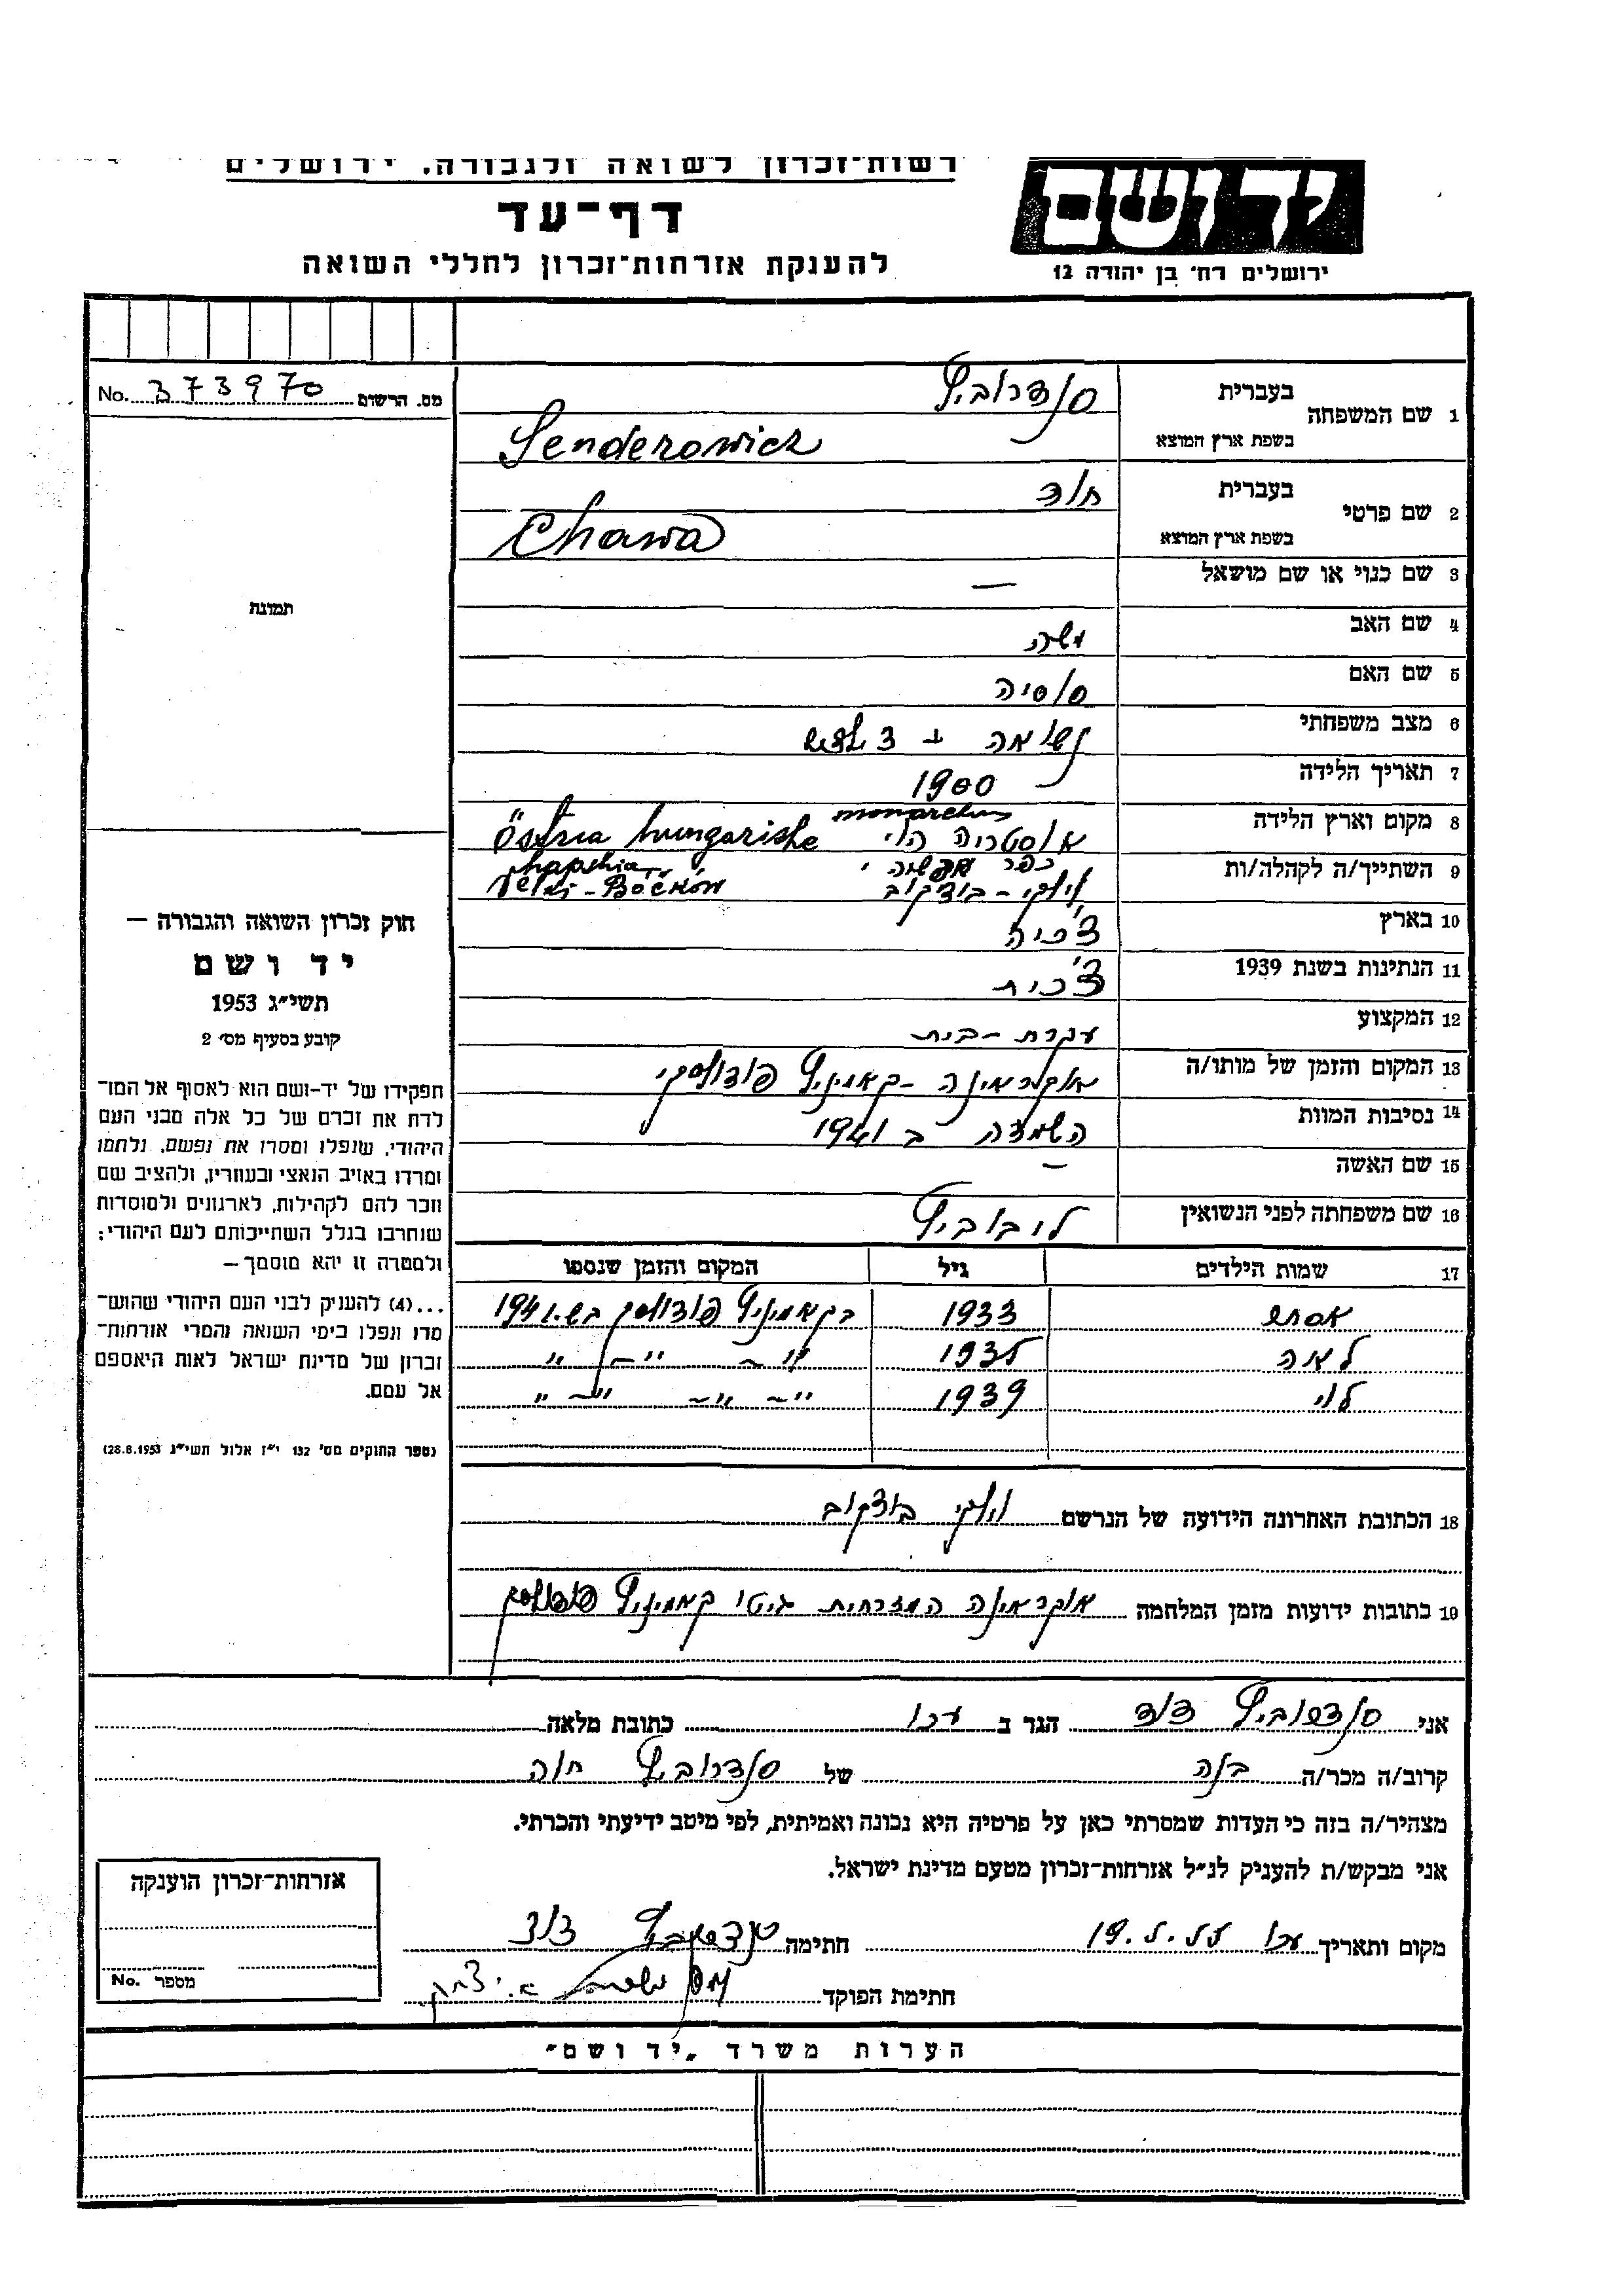 רשות־זכרון לשואה ולגבורה, ירושלים
יד ושם
דף־עד
להענקת אזרחות־זכרון לחללי השואה
ירושלים רח׳ בן יהודה 12
מס. הרשום No. 373970
1 שם המשפחה בעברית סנדרוביץ
בשפת ארץ המוצא Senderowicz
2 שם פרטי בעברית חוה
בשפת ארץ המוצא Chawa
3 שם כנוי או שם מושאל —
4 שם האב משה
5 שם האם
6 מצב משפחתי נשואה + 3 ילדים
7 תאריך הלידה 1900
8 מקום וארץ הלידה אוסטריה הונ׳ Östria hungarishe
9 השתייך/ה לקהלה/ות כפר
10 בארץ צ׳כיה
11 הנתינות בשנת 1939 צ׳כית
12 המקצוע עקרת-בית
13 המקום והזמן של מותו/ה אוקראינה - קאמיניץ פודולסקי
14 נסיבות המוות השמדה ב 1941
15 שם האשה —
16 שם משפחתה לפני הנשואין ליבוביץ
17 שמות הילדים גיל המקום והזמן שנספו
אסתר 1933 בקאמיניץ פודולסק בש. 1941
לאה 1935 ״ — ״ — ״
לוי 1939 ״ — ״ — ״ — ״
18 הכתובת האחרונה הידועה של הנרשם
19 כתובות ידועות מזמן המלחמה אוקראינה המזרחית גיטו קאמיניץ פודולסק
תמונה
חוק זכרון השואה והגבורה —
יד ושם
תשי״ג 1953
קובע בסעיף מס׳ 2
תפקידו של יד-ושם הוא לאסוף אל המו־
לדת את זכרם של כל אלה מבני העם
היהודי, שנפלו ומסרו את נפשם, נלחמו
ומרדו באויב הנאצי ובעוזריו, ולהציב שם
וזכר להם לקהילות, לארגונים ולמוסדות
שנחרבו בגלל השתייכותם לעם היהודי;
ולמטרה זו יהא מוסמך —
...(4) להעניק לבני העם היהודי שהוש־
מדו ונפלו בימי השואה והמרי אזרחות־
זכרון של מדינת ישראל לאות היאספם
אל עמם.
(ספר החוקים מס׳ 132 י״ז אלול תשי״ג 28.8.1953)
אני סנדרוביץ דוד הגר ב עכו כתובת מלאה
קרוב/ה מכר/ה בנה של סנדרוביץ חוה
מצהיר/ה בזה כי העדות שמסרתי כאן על פרטיה היא נכונה ואמיתית, לפי מיטב ידיעתי והכרתי.
אני מבקש/ת להעניק לנ״ל אזרחות-זכרון מטעם מדינת ישראל.
מקום ותאריך עכו 19.5.55 חתימה סנדרוביץ דוד
חתימת הפוקד
אזרחות-זכרון הוענקה
מספר No.
הערות משרד „יד ושם״